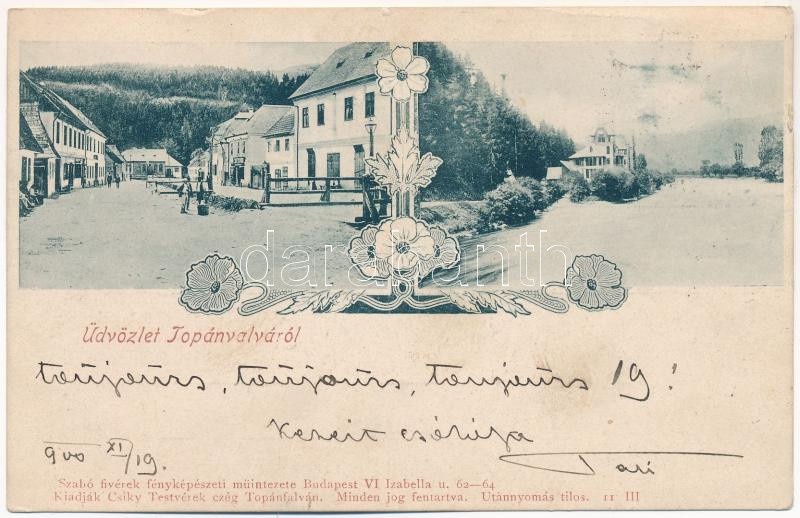 darabanth
Üdvözlet Topánvalváról
toujours, toujours, toujours 19!
Kezeit csókolja
900 XI/19.
Szabó fivérek fényképészeti müintezete Budapest VI Izabella u. 62—64
Kiadják Csiky Testvérek czég Topánfalván. Minden jog fentartva. Utánnyomás tilos. 11 III